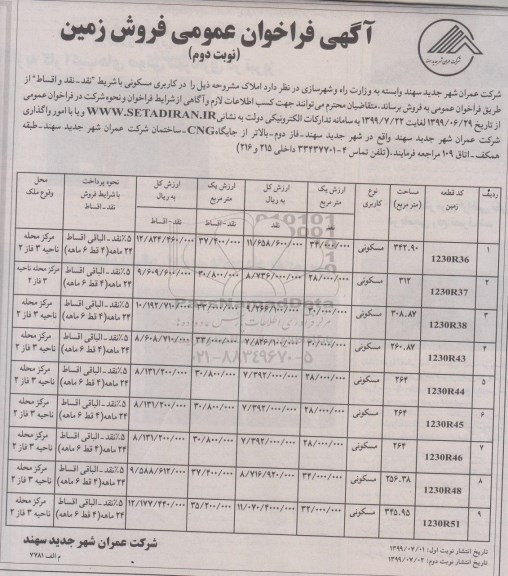 آگهی فراخوان عمومی فروش زمین
(نوبت دوم)
شرکت عمران شهر جدید سهند وابسته به وزارت راه و شهرسازی در نظر دارد املاک مشروحه ذیل را در کاربری مسکونی با شرایط "نقد ـ نقد و اقساط" از
طریق فراخوان عمومی به فروش برساند، متقاضیان محترم می‌توانند جهت کسب اطلاعات لازم و آگاهی از شرایط فراخوان و نحوه شرکت در فراخوان عمومی
از تاریخ ۱۳۹۹/۰۶/۲۹ لغایت ۱۳۹۹/۷/۲۲ به سامانه تدارکات الکترونیکی دولت به نشانی WWW.SETADIRAN.IR و یا با امور واگذاری
شرکت عمران شهر جدید سهند واقع در شهر جدید سهند ـ فاز دوم ـ بالاتر از جایگاه CNG ـ ساختمان شرکت عمران شهر جدید سهند ـ طبقه
همکف ـ اتاق ۱۰۹ مراجعه فرمایند. (تلفن تماس ۴-۳۳۴۳۷۷۰۱ داخلی ۲۱۵ و ۲۱۶)
ردیف | کد قطعه زمین | مساحت (متر مربع) | نوع کاربری | ارزش یک متر مربع نقد | ارزش کل به ریال نقد | ارزش یک متر مربع نقد ـ اقساط | ارزش کل به ریال نقد ـ اقساط | نحوه پرداخت با شرایط فروش نقد ـ اقساط | محل وقوع ملک
۱ | 1230R36 | ۳۴۲.۹۰ | مسکونی | ۳۴/۰۰۰/۰۰۰ | ۱۱/۶۵۸/۶۰۰/۰۰۰ | ۳۷/۴۰۰/۰۰۰ | ۱۲/۸۲۴/۴۶۰/۰۰۰ | ۵۰٪ نقد ـ الباقی اقساط ۲۴ ماهه (۴ قسط ۶ ماهه) | مرکز محله ناحیه ۳ فاز ۲
۲ | 1230R37 | ۳۱۲ | مسکونی | ۲۸/۰۰۰/۰۰۰ | ۸/۷۳۶/۰۰۰/۰۰۰ | ۳۰/۸۰۰/۰۰۰ | ۹/۶۰۹/۶۰۰/۰۰۰ | ۵۰٪ نقد ـ الباقی اقساط ۲۴ ماهه (۴ قسط ۶ ماهه) | مرکز محله ناحیه ۳ فاز ۲
۳ | 1230R38 | ۳۰۸.۸۷ | مسکونی | ۳۰/۰۰۰/۰۰۰ | ۹/۲۶۶/۱۰۰/۰۰۰ | ۳۳/۰۰۰/۰۰۰ | ۱۰/۱۹۲/۷۱۰/۰۰۰ | ۵۰٪ نقد ـ الباقی اقساط ۲۴ ماهه (۴ قسط ۶ ماهه) | مرکز محله ناحیه ۳ فاز ۲
۴ | 1230R43 | ۲۶۰.۸۷ | مسکونی | ۳۰/۰۰۰/۰۰۰ | ۷/۸۲۶/۱۰۰/۰۰۰ | ۳۳/۰۰۰/۰۰۰ | ۸/۶۰۸/۷۱۰/۰۰۰ | ۵۰٪ نقد ـ الباقی اقساط ۲۴ ماهه (۴ قسط ۶ ماهه) | مرکز محله ناحیه ۳ فاز ۲
۵ | 1230R44 | ۲۶۴ | مسکونی | ۲۸/۰۰۰/۰۰۰ | ۷/۳۹۲/۰۰۰/۰۰۰ | ۳۰/۸۰۰/۰۰۰ | ۸/۱۳۱/۲۰۰/۰۰۰ | ۵۰٪ نقد ـ الباقی اقساط ۲۴ ماهه (۴ قسط ۶ ماهه) | مرکز محله ناحیه ۳ فاز ۲
۶ | 1230R45 | ۲۶۴ | مسکونی | ۲۸/۰۰۰/۰۰۰ | ۷/۳۹۲/۰۰۰/۰۰۰ | ۳۰/۸۰۰/۰۰۰ | ۸/۱۳۱/۲۰۰/۰۰۰ | ۵۰٪ نقد ـ الباقی اقساط ۲۴ ماهه (۴ قسط ۶ ماهه) | مرکز محله ناحیه ۳ فاز ۲
۷ | 1230R46 | ۲۶۴ | مسکونی | ۲۸/۰۰۰/۰۰۰ | ۷/۳۹۲/۰۰۰/۰۰۰ | ۳۰/۸۰۰/۰۰۰ | ۸/۱۳۱/۲۰۰/۰۰۰ | ۵۰٪ نقد ـ الباقی اقساط ۲۴ ماهه (۴ قسط ۶ ماهه) | مرکز محله ناحیه ۳ فاز ۲
۸ | 1230R48 | ۲۵۶.۳۸ | مسکونی | ۳۴/۰۰۰/۰۰۰ | ۸/۷۱۶/۹۲۰/۰۰۰ | ۳۷/۴۰۰/۰۰۰ | ۹/۵۸۸/۶۱۲/۰۰۰ | ۵۰٪ نقد ـ الباقی اقساط ۲۴ ماهه (۴ قسط ۶ ماهه) | مرکز محله ناحیه ۳ فاز ۲
۹ | 1230R51 | ۳۴۵.۹۵ | مسکونی | ۳۲/۰۰۰/۰۰۰ | ۱۱/۰۷۰/۴۰۰/۰۰۰ | ۳۵/۲۰۰/۰۰۰ | ۱۲/۱۷۷/۴۴۰/۰۰۰ | ۵۰٪ نقد ـ الباقی اقساط ۲۴ ماهه (۴ قسط ۶ ماهه) | مرکز محله ناحیه ۳ فاز ۲
تاریخ انتشار نوبت اول: ۱۳۹۹/۰۷/۰۱
تاریخ انتشار نوبت دوم: ۱۳۹۹/۰۷/۰۲
شرکت عمران شهر جدید سهند
م الف ۷۷۸۱
۰۲۱-۸۸۳۴۹۶۷۰-۵